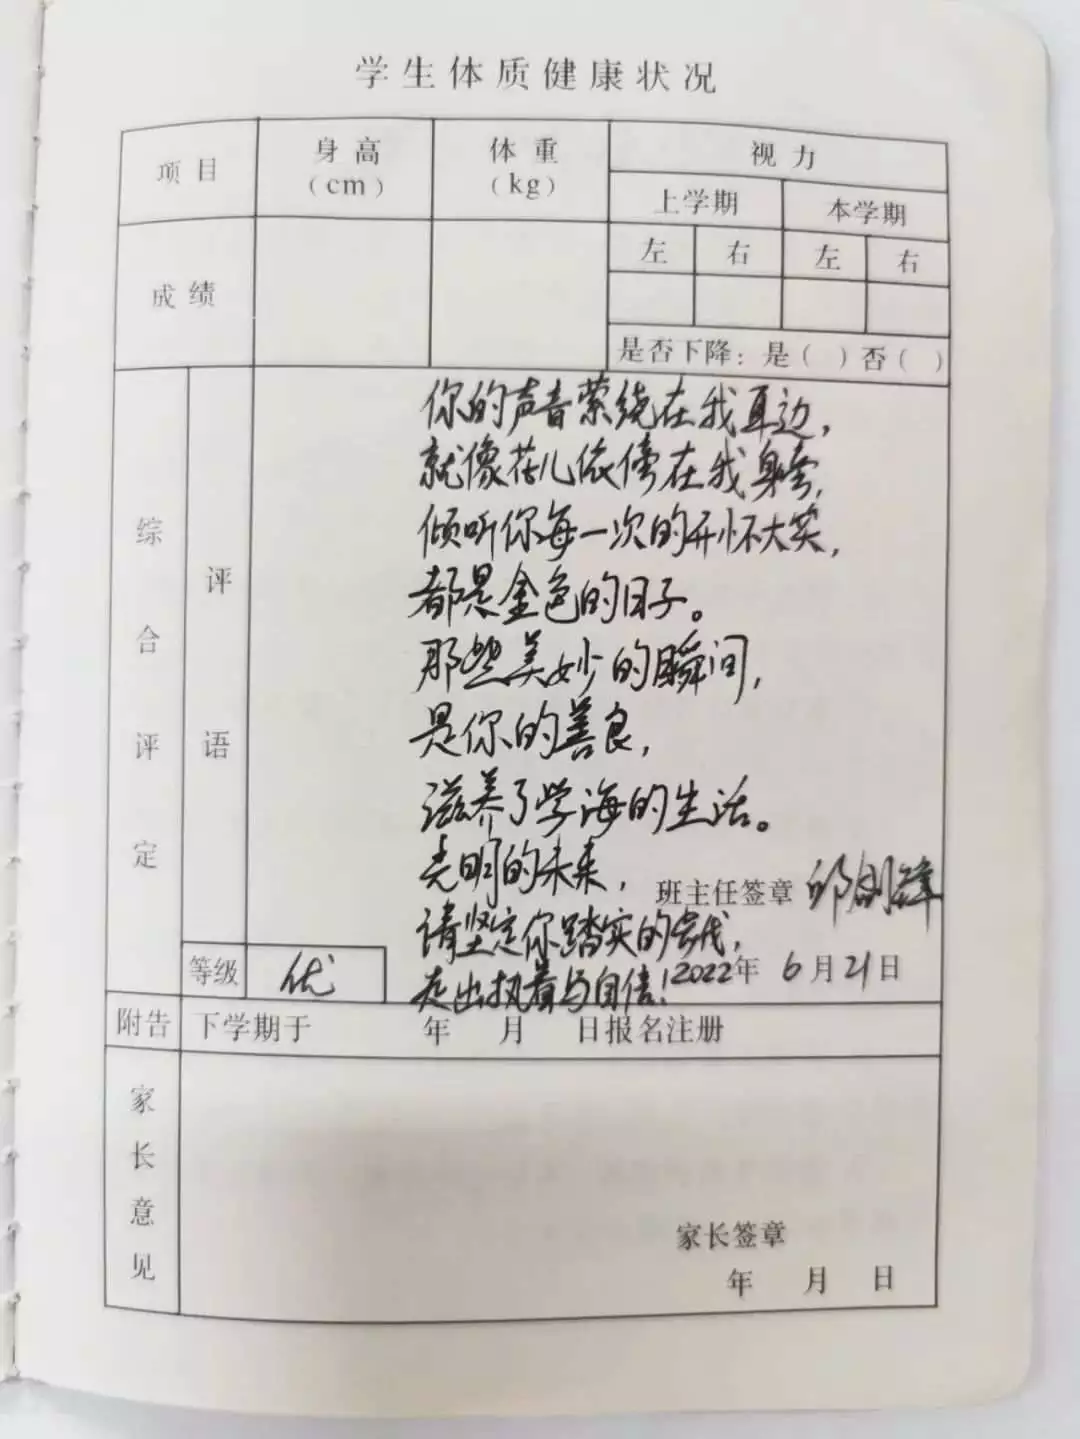 学生体质健康状况
项目 身高 (cm) 体重 (kg) 视力
上学期 本学期
左 右 左 右
成绩
是否下降：是（ ）否（ ）
综合评定
评语
你的声音萦绕在我耳边，
就像花儿依傍在我身旁，
倾听你每一次的开怀大笑，
都是金色的日子。
那些美妙的瞬间，
是你的善良，
滋养了学海的生活。
光明的未来，
班主任签章
请坚定你踏实的
走出执着与自信！
2022年 6月21日
等级 优
附告 下学期于 年 月 日报名注册
家长意见
家长签章
年 月 日